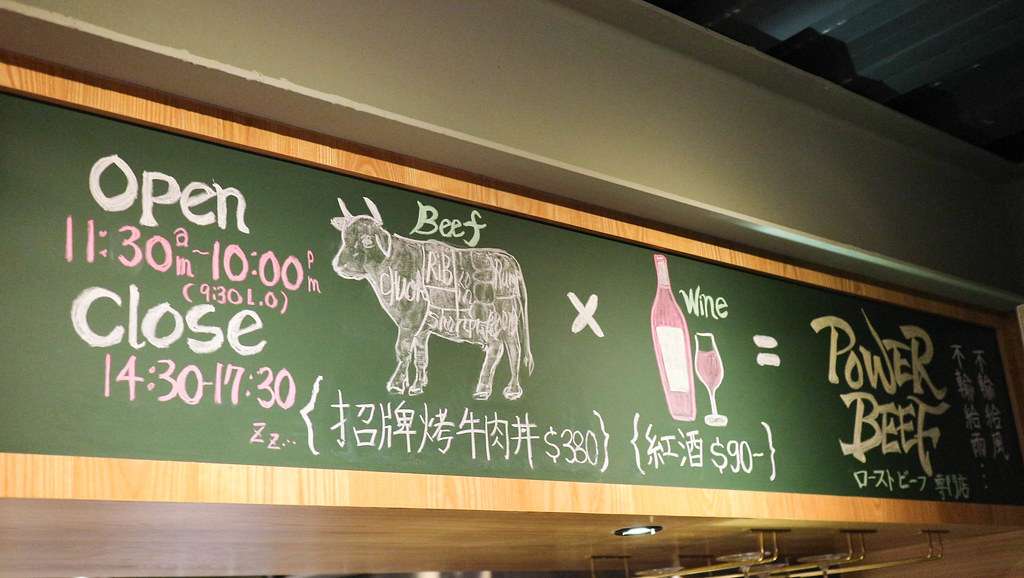 Open
11:30am~10:00pm
(9:30 L.O)
Close
14:30-17:30
zz...
Beef
RIB
{招牌烤牛肉丼 $380}
×
Wine
{紅酒 $90-}
=
POWER
BEEF
ローストビーフ 専門店
不輸給風
不輸給雨...